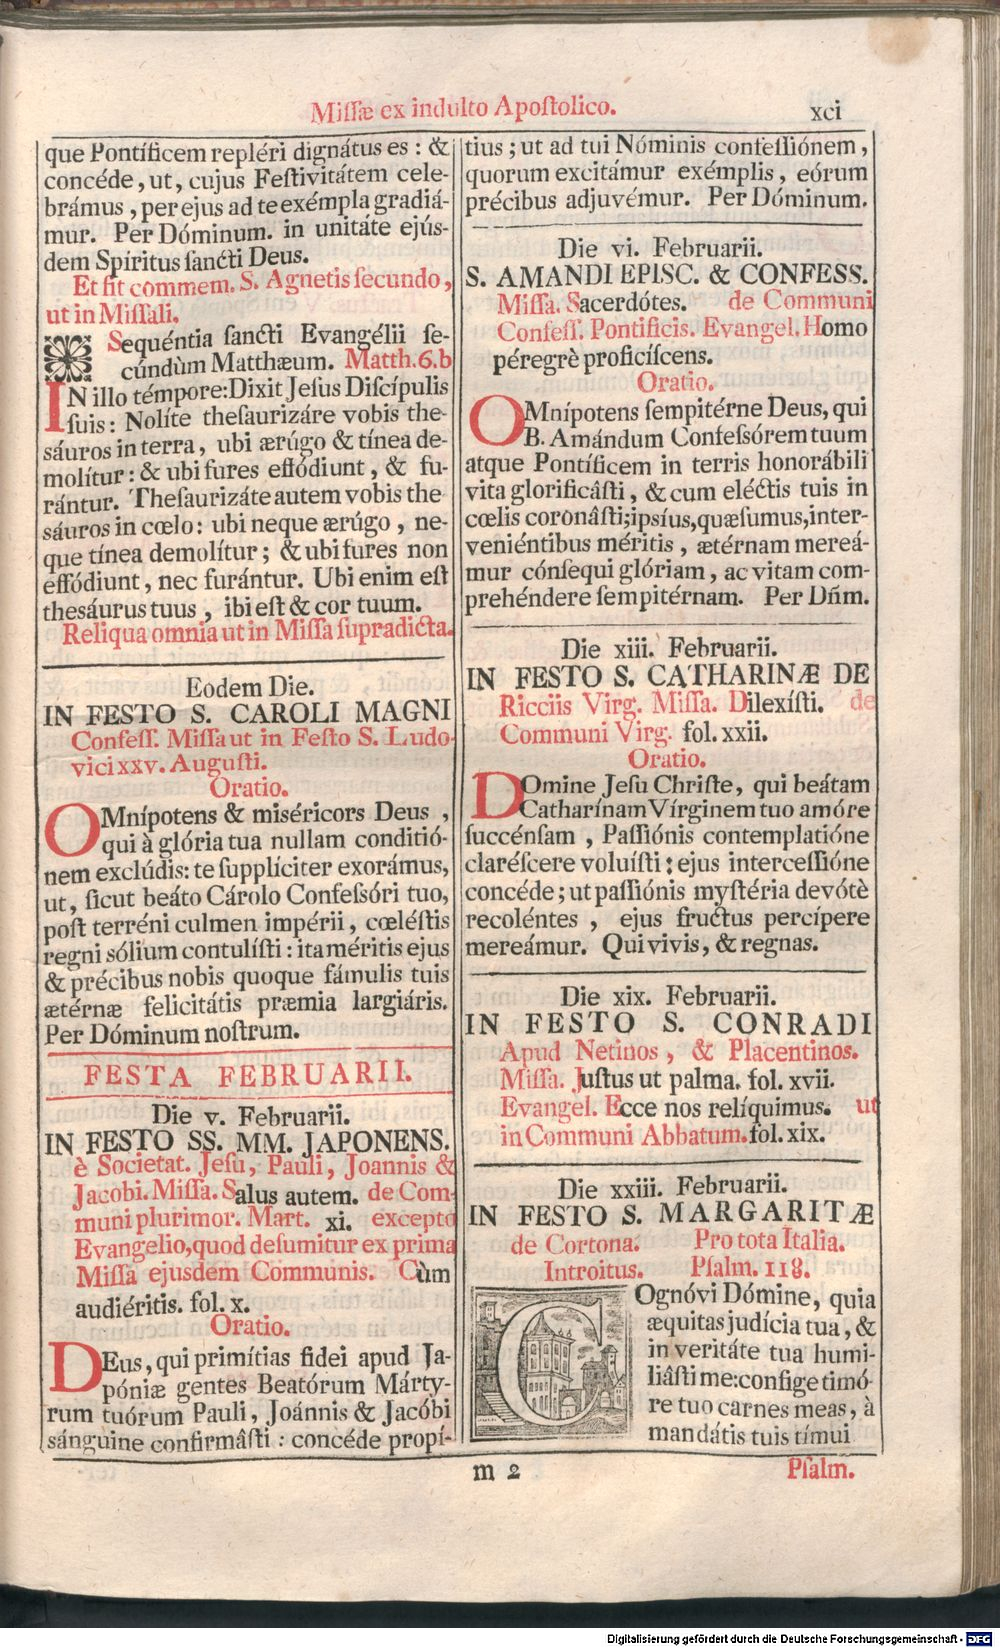 Miſſæ ex indulto Apoſtolico.
xci
que Pontíficem repléri dignátus es : &
concéde, ut, cujus Feſtivitátem cele-
brámus, per ejus ad te exémpla gradiá-
mur. Per Dóminum. in unitáte ejús-
dem Spiritus ſancti Deus.
Et fit commem. S. Agnetis ſecundo,
ut in Miſſali.
Sequéntia ſancti Evangélii ſe-
cúndùm Matthæum. Matth. 6. b
IN illo témpore: Dixit Jeſus Diſcípulis
ſuis: Nolíte theſaurizáre vobis the-
sáuros in terra, ubi ærúgo & tínea de-
molítur: & ubi fures effódiunt, & fu-
rántur. Theſaurizáte autem vobis the
sáuros in cœlo: ubi neque ærúgo, ne-
que tínea demolítur; & ubi fures non
effódiunt, nec furántur. Ubi enim eſt
thesáurus tuus, ibi eſt & cor tuum.
Reliqua omnia ut in Miſſa ſupradicta.
Eodem Die.
IN FESTO S. CAROLI MAGNI
Confeſſ. Miſſa ut in Feſto S. Ludo-
vici xxv. Auguſti.
Oratio.
OMnípotens & miséricors Deus,
qui à glória tua nullam conditió-
nem exclúdis: te ſuppliciter exorámus,
ut, ſicut beáto Cárolo Confeſsóri tuo,
poſt terréni culmen impérii, cœléſtis
regni sólium contulíſti: ita méritis ejus
& précibus nobis quoque fámulis tuis
ætérnæ felicitátis præmia largiáris.
Per Dóminum noſtrum.
FESTA FEBRUARII.
Die v. Februarii.
IN FESTO SS. MM. JAPONENS.
è Societat. Jeſu, Pauli, Joannis &
Jacobi. Miſſa. Salus autem. de Com-
muni plurimor. Mart. xi. excepto
Evangelio, quod deſumitur ex prima
Miſſa ejusdem Communis. Cùm
audiéritis. fol. x.
Oratio.
DEus, qui primítias fidei apud Ja-
póniæ gentes Beatórum Márty-
rum tuórum Pauli, Joánnis & Jacóbi
sánguine confirmâſti : concéde propí-
tius; ut ad tui Nóminis confeſſiónem,
quorum excitámur exémplis, eórum
précibus adjuvémur. Per Dóminum.
Die vi. Februarii.
S. AMANDI EPISC. & CONFESS.
Miſſa. Sacerdótes. de Communi
Confeſſ. Pontificis. Evangel. Homo
péregrè proficíſcens.
Oratio.
OMnípotens ſempitérne Deus, qui
B. Amándum Confeſsórem tuum
atque Pontíficem in terris honorábili
vita glorificâſti, & cum eléctis tuis in
cœlis coronâſti; ipsíus, quæſumus, inter-
veniéntibus méritis, ætérnam mereá-
mur cónſequi glóriam, ac vitam com-
prehéndere ſempitérnam. Per Dñm.
Die xiii. Februarii.
IN FESTO S. CATHARINÆ DE
Ricciis Virg. Miſſa. Dilexíſti. de
Communi Virg. fol. xxii.
Oratio.
DOmine Jeſu Chriſte, qui beátam
Catharínam Vírginem tuo amóre
ſuccénſam, Paſſiónis contemplatióne
claréſcere voluíſti; ejus interceſſióne
concéde; ut paſſiónis myſtéria devótè
recoléntes, ejus fructus percípere
mereámur. Qui vivis, & regnas.
Die xix. Februarii.
IN FESTO S. CONRADI
Apud Netinos, & Placentinos.
Miſſa. Juſtus ut palma. fol. xvii.
Evangel. Ecce nos relíquimus. ut
in Communi Abbatum. fol. xix.
Die xxiii. Februarii.
IN FESTO S. MARGARITÆ
de Cortona. Pro tota Italia.
Introitus. Pſalm. 118.
COgnóvi Dómine, quia
æquitas judícia tua, &
in veritáte tua humi-
liâſti me: confige timó-
re tuo carnes meas, à
mandátis tuis tímui
m 2
Pſalm.
Digitalisierung gefördert durch die Deutsche Forschungsgemeinschaft - DFG